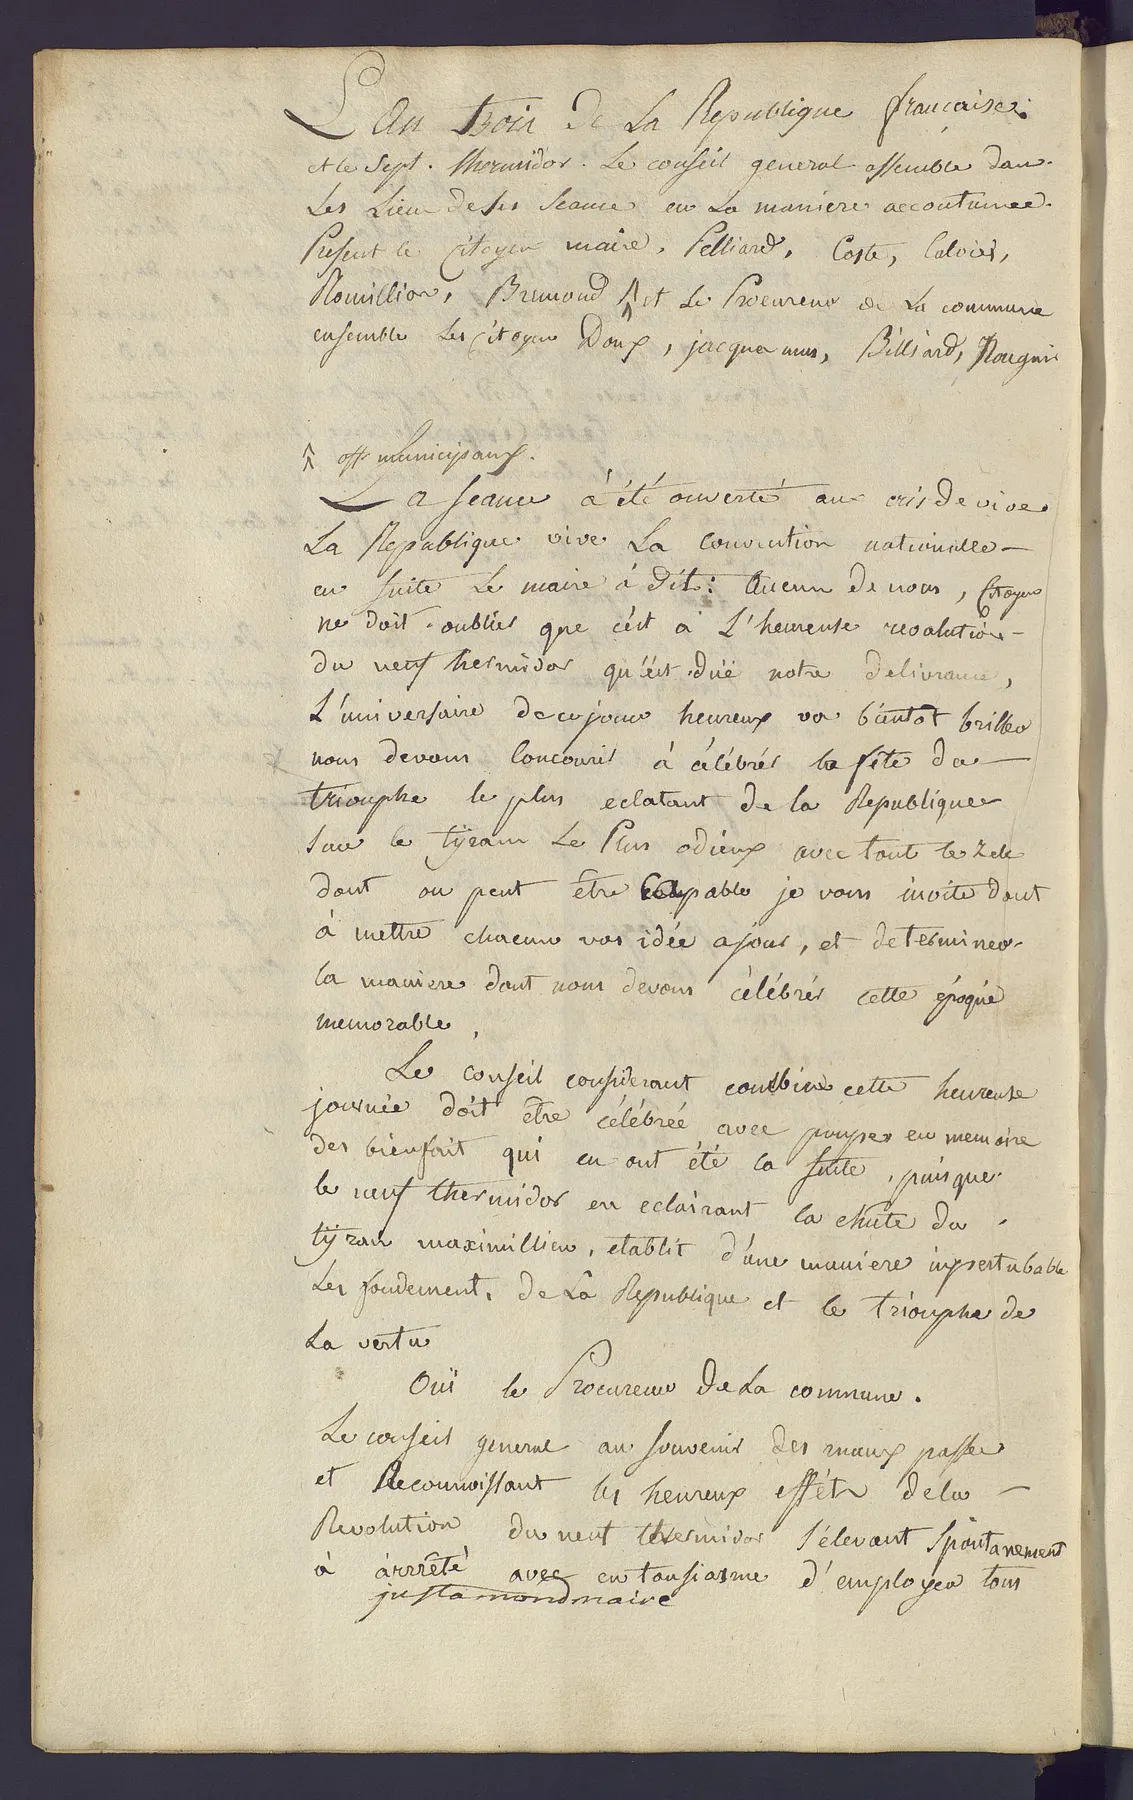 L'An trois de La Republique française.
et le sept. thermidor. Le conseil general assemblé dans
Les Lieu de ses Seance en La maniere accoutumée.
Présent le Citoyen maire, Pelliard, Coste, Calvier,
Roumillion, Bremond ⩚ et Le Procureur de La commune
ensemble Les Citoyen Doux, jacquemus, Billiard, Rougnis
⩚ off municipaux.
La seance à été ouverté aux cris de vive
La Republique vive La Convention nationalle —
en suite Le maire à dit: Aucun de nous, Citoyens
ne doit oublier que c'ést à L'heureuse revolution —
du neuf thermidor qu'ést düé notre delivrance,
L'universaire de ce jour heureux va bientot briller
nous devons Concourir à célébrér la féte du —
triomphe le plus eclatant de la Republique
sur le tÿrans Le Plus odieux avec tout le Zele
dont on peut être Capable je vous invite dont
à mettre chacun vos idée a jour, et determiner
la maniere dont nous devons célébrér cette époque
memorable,
Le Conseil considerant combien cette heureuse
journée doit être célébrée avec pompes en memoire
des bienfait qui en ont été la suite, puisque
le neuf thermidor en eclairant la chute du
tÿran maximillien, etablit d'une maniere imperturbable
Les fondement, de La Republique et le triomphe de
La vertu
Ouï le Procureur De La commune.
Le conseil general au souvenir des maux passer
et Reconnoissant les heureux effétr de la —
Revolution du neuf thermidor s'élevant spontanement
à àrrrêté avec entousiasme d'employer tous
justamond maire